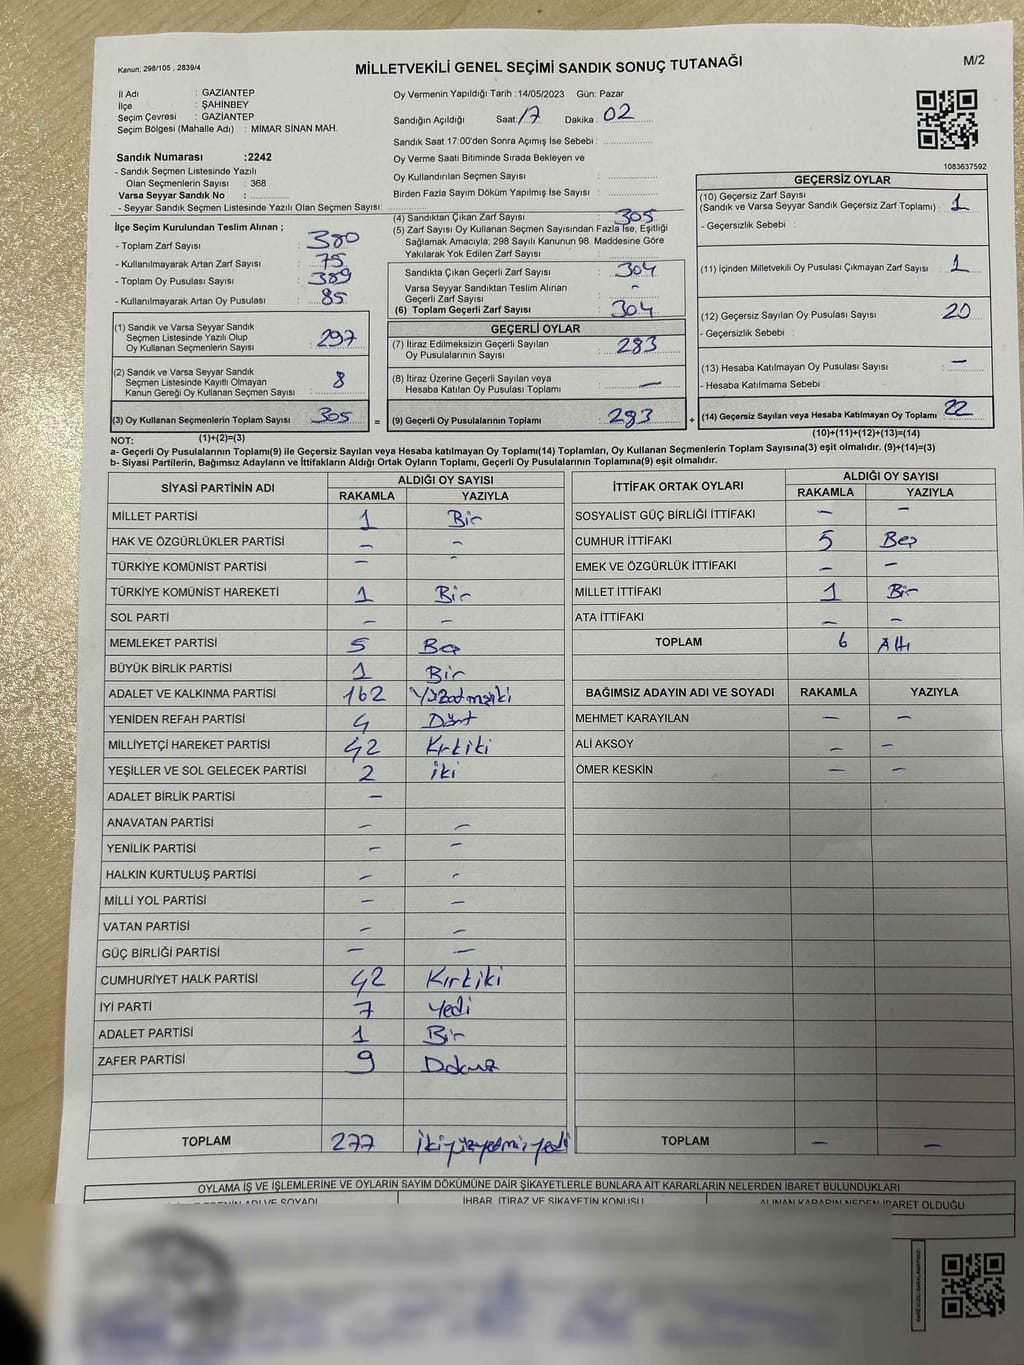 Kanun; 298/105 , 2839/4
MİLLETVEKİLİ GENEL SEÇİMİ SANDIK SONUÇ TUTANAĞI
M/2
İl Adı : GAZİANTEP
İlçe : ŞAHİNBEY
Seçim Çevresi : GAZİANTEP
Seçim Bölgesi (Mahalle Adı) : MİMAR SİNAN MAH.
Sandık Numarası :2242
- Sandık Seçmen Listesinde Yazılı
Olan Seçmenlerin Sayısı : 368
Varsa Seyyar Sandık No :
- Seyyar Sandık Seçmen Listesinde Yazılı Olan Seçmen Sayısı:
Oy Vermenin Yapıldığı Tarih :14/05/2023 Gün: Pazar
Sandığın Açıldığı Saat: 17 Dakika : 02
Sandık Saat 17:00'den Sonra Açımış İse Sebebi :
Oy Verme Saati Bitiminde Sırada Bekleyen ve
Oy Kullandırılan Seçmen Sayısı :
Birden Fazla Sayım Döküm Yapılmış İse Sayısı :
1083637592
İlçe Seçim Kurulundan Teslim Alınan ;
- Toplam Zarf Sayısı : 380
- Kullanılmayarak Artan Zarf Sayısı : 75
- Toplam Oy Pusulası Sayısı : 389
- Kullanılmayarak Artan Oy Pusulası : 85
(1) Sandık ve Varsa Seyyar Sandık
Seçmen Listesinde Yazılı Olup
Oy Kullanan Seçmenlerin Sayısı : 297
(2) Sandık ve Varsa Seyyar Sandık
Seçmen Listesinde Kayıtlı Olmayan
Kanun Gereği Oy Kullanan Seçmen Sayısı : 8
(3) Oy Kullanan Seçmenlerin Toplam Sayısı : 305 =
(4) Sandıktan Çıkan Zarf Sayısı : 305
(5) Zarf Sayısı Oy Kullanan Seçmen Sayısından Fazla İse, Eşitliği
Sağlamak Amacıyla; 298 Sayılı Kanunun 98. Maddesine Göre
Yakılarak Yok Edilen Zarf Sayısı :
Sandıkta Çıkan Geçerli Zarf Sayısı : 304
Varsa Seyyar Sandıktan Teslim Alınan
Geçerli Zarf Sayısı : -
(6) Toplam Geçerli Zarf Sayısı : 304
GEÇERLİ OYLAR
(7) İtiraz Edilmeksizin Geçerli Sayılan
Oy Pusulalarının Sayısı : 283
(8) İtiraz Üzerine Geçerli Sayılan veya
Hesaba Katılan Oy Pusulası Toplamı : -
(9) Geçerli Oy Pusulalarının Toplamı : 283 +
GEÇERSİZ OYLAR
(10) Geçersiz Zarf Sayısı
(Sandık ve Varsa Seyyar Sandık Geçersiz Zarf Toplamı) : 1
- Geçersizlik Sebebi :
(11) İçinden Milletvekili Oy Pusulası Çıkmayan Zarf Sayısı : 1
(12) Geçersiz Sayılan Oy Pusulası Sayısı : 20
- Geçersizlik Sebebi :
(13) Hesaba Katılmayan Oy Pusulası Sayısı : -
- Hesaba Katılmama Sebebi :
(14) Geçersiz Sayılan veya Hesaba Katılmayan Oy Toplamı : 22
NOT: (1)+(2)=(3) (10)+(11)+(12)+(13)=(14)
a- Geçerli Oy Pusulalarının Toplamı(9) ile Geçersiz Sayılan veya Hesaba katılmayan Oy Toplamı(14) Toplamları, Oy Kullanan Seçmenlerin Toplam Sayısına(3) eşit olmalıdır. (9)+(14)=(3)
b- Siyasi Partilerin, Bağımsız Adayların ve İttifakların Aldığı Ortak Oyların Toplamı, Geçerli Oy Pusulalarının Toplamına(9) eşit olmalıdır.
SİYASİ PARTİNİN ADI ALDIĞI OY SAYISI
RAKAMLA YAZIYLA
MİLLET PARTİSİ 1 Bir
HAK VE ÖZGÜRLÜKLER PARTİSİ - -
TÜRKİYE KOMÜNİST PARTİSİ - -
TÜRKİYE KOMÜNİST HAREKETİ 1 Bir
SOL PARTİ - -
MEMLEKET PARTİSİ 5 Beş
BÜYÜK BİRLİK PARTİSİ 1 Bir
ADALET VE KALKINMA PARTİSİ 162 Yüzatmışiki
YENİDEN REFAH PARTİSİ 4 Dört
MİLLİYETÇİ HAREKET PARTİSİ 42 Kırkiki
YEŞİLLER VE SOL GELECEK PARTİSİ 2 iki
ADALET BİRLİK PARTİSİ -
ANAVATAN PARTİSİ - -
YENİLİK PARTİSİ - -
HALKIN KURTULUŞ PARTİSİ - -
MİLLİ YOL PARTİSİ - -
VATAN PARTİSİ - -
GÜÇ BİRLİĞİ PARTİSİ - -
CUMHURİYET HALK PARTİSİ 42 Kırkiki
İYİ PARTİ 7 Yedi
ADALET PARTİSİ 1 Bir
ZAFER PARTİSİ 9 Dokuz
TOPLAM 277 ikiyüzyetmişyedi
İTTİFAK ORTAK OYLARI ALDIĞI OY SAYISI
RAKAMLA YAZIYLA
SOSYALİST GÜÇ BİRLİĞİ İTTİFAKI - -
CUMHUR İTTİFAKI 5 Beş
EMEK VE ÖZGÜRLÜK İTTİFAKI - -
MİLLET İTTİFAKI 1 Bir
ATA İTTİFAKI - -
TOPLAM 6 Altı
BAĞIMSIZ ADAYIN ADI VE SOYADI RAKAMLA YAZIYLA
MEHMET KARAYILAN - -
ALİ AKSOY - -
ÖMER KESKİN - -
TOPLAM - -
OYLAMA İŞ VE İŞLEMLERİNE VE OYLARIN SAYIM DÖKÜMÜNE DAİR ŞİKAYETLERLE BUNLARA AİT KARARLARIN NELERDEN İBARET BULUNDUKLARI
ADI VE SOYADI İHBAR, İTİRAZ VE ŞİKAYETİN KONUSU ALINAN KARARIN NEDEN İBARET OLDUĞU